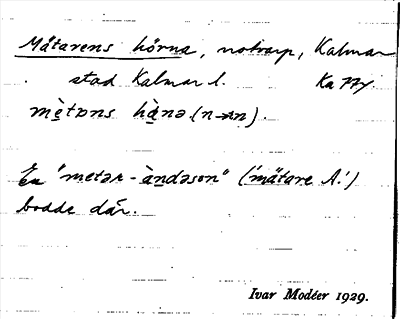 Mätarens hörna, notvarp, Kalmar
stad Kalmar l. Ka
mètɒns hànə (n→n).
En "metər-àndəson" ('mätare A.')
bodde där.
Ivar Modéer 1929.